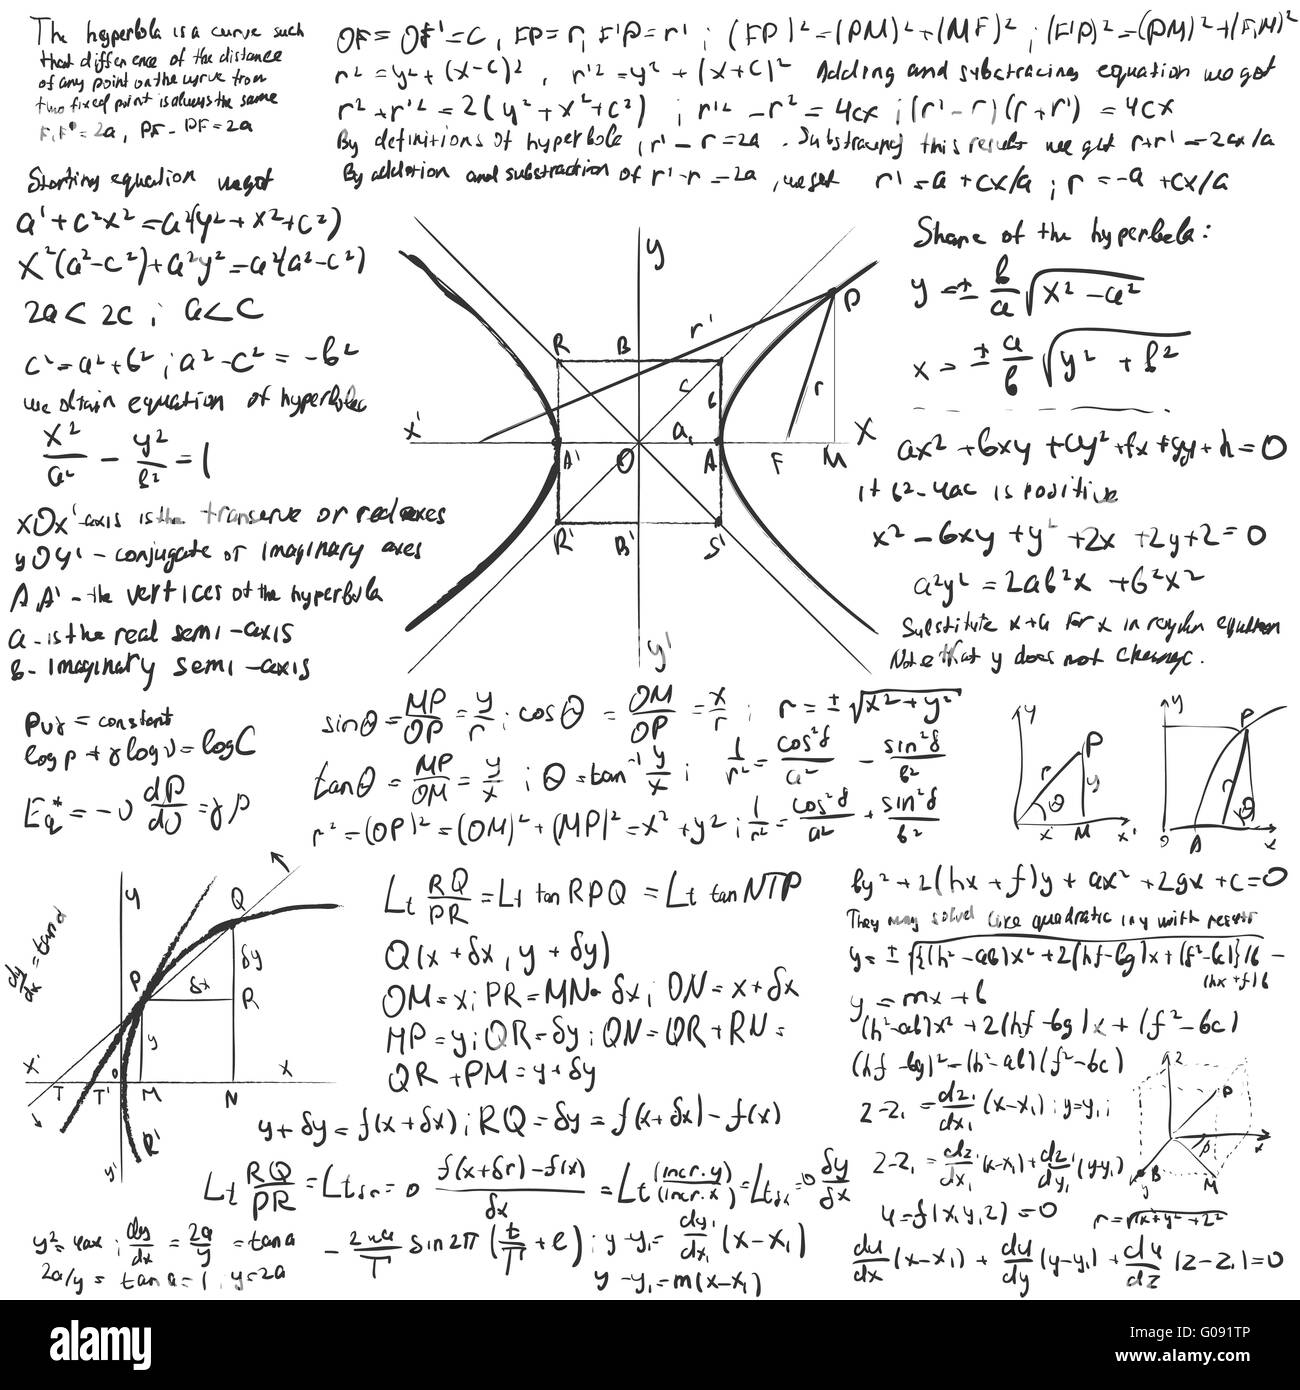 The hyperbola is a curve such
that difference of the distance
of any point on the curve from
two fixed point is always the same
= 2a, PF - PF = 2a
OF = OF' = C, FP = r, F'P = r' ; (FP)² = (PM)² + (MF)² ; (F'P)² = (PM)² + (F,M)²
r² = y² + (x-c)², r'² = y² + (x+c)² Adding and subctracing equation we got
r² + r'² = 2(y² + x² + c²) ; r'² - r² = 4cx ; (r' - r)(r + r') = 4cx
By definitions of hyperbole, r' - r = 2a. Substracing this results we get r+r' = 2cx/a
By addition and substraction of r' - r = 2a, we get r' = a + cx/a ; r = -a + cx/a
Starting equation we got
a' + c²x² = a²(y² + x² + c²)
x²(a²-c²) + a²y² = a²(a²-c²)
2a < 2c ; a < C
c' = a² + b² ; a² - c² = -b²
we obtain equation of hyperbolec
x²/a² - y²/b² = 1
xOx' - axis is the transerve or real axes
yOy' - conjugate or imaginary axes
A,A' - the vertices of the hyperbula
a - is the real semi-axis
b - imaginary semi-axis
y
P
r'
R B
c b r
x' a, x
A' O A F M
R' B' S'
y'
Shape of the hyperbela:
y = ± b/a √x² - a²
x = ± a/b √y² + b²
ax² + bxy + cy² + fx + gy + h = 0
if b² - 4ac is positive
x² - 6xy + y² + 2x + 2y + 2 = 0
a²y² = 2ab²x + b²x²
Substitute x+a for x in equation
Note that y does not change.
pvγ = constant
log p + γ log v = log C
= -v dp/dv = γp
sinθ = MP/OP = y/r ; cosθ = OM/OP = x/r ; r = ± √x² + y²
tanθ = MP/OM = y/x ; θ = tan⁻¹ y/x ; 1/r² = cos²δ/a² - sin²δ/b²
r² = (OP)² = (OM)² + (MP)² = x² + y² ; 1/r² = cos²δ/a² + sin²δ/b²
y P
r y
θ
x M x'
y P
r θ
A x
dy/dx = tan α
y Q
P δy
δx R
y
x' x
T T' o M N
R'
y'
Lt RQ/PR = Lt tan RPQ = Lt tan NTP
Q(x + δx, y + δy)
OM = x ; PR = MN = δx ; ON = x + δx
MP = y ; QR = δy ; QN = QR + RN =
QR + PM = y + δy
y + δy = f(x + δx) ; RQ = δy = f(x + δx) - f(x)
Lt RQ/PR = Lt = 0 f(x+δr) - f(x)/δx = Lt (incr.y)/(incr.x) = Lt δx = 0 δy/δx
by² + 2(hx + f)y + ax² + 2gx + c = 0
They may solved like quadratic in y with
y = ± √{(h² - ab)x² + 2(hf - bg)x + (f² - bc)}/b -
(hx + f)b
y = mx + b
(h² - ab)x² + 2(hf - bg)x + (f² - bc)
(hf - bg)² - (h² - ab)(f² - bc)
z - z₁ = dz₁/dx₁ (x - x₁) ; y = y₁ ;
z - z₁ = dz₁/dx₁ (x - x₁) + dz₁/dy₁ (y - y₁)
u = f(x, y, z) = 0
z
P
x
y B M
r = √x² + y² + z²
y² = 4ax ; dy/dx = 2a/y = tan a
2a/y = tan a = 1, y = 2a
sin 2π (t/T + e) ; y - y₁ = dy₁/dx₁ (x - x₁)
y - y₁ = m(x - x₁)
du/dx (x - x₁) + du/dy (y - y₁) + du/dz (z - z₁) = 0
alamy
Image ID: G091TP
www.alamy.com